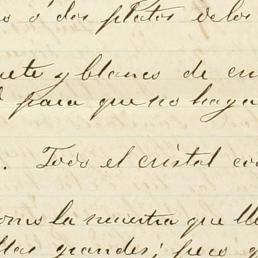 s o dos platos de los
uete y blanco de en
para que no haya
. Todo el cristal co
omo la muestra que lle
llas grandes; pero q